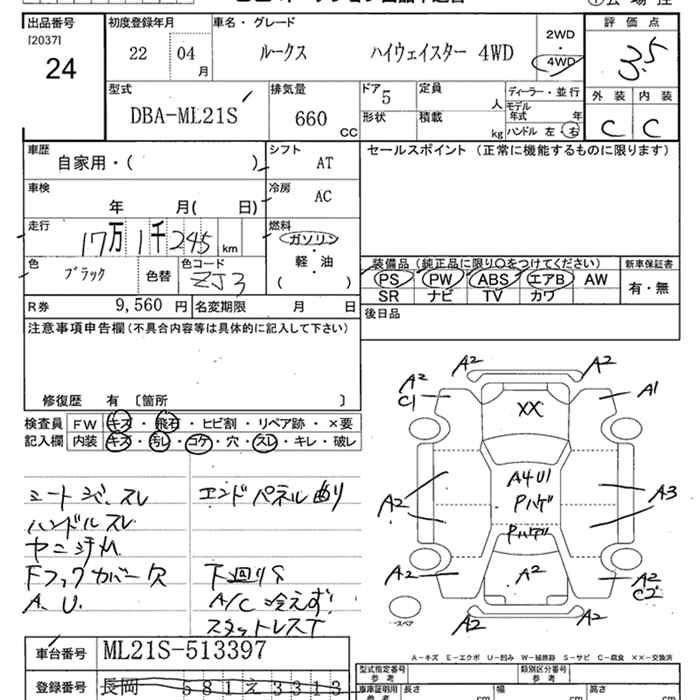 出品番号 初度登録年月 車名・グレード 評価点
[2037]
24
22 04 月 ルークス ハイウェイスター 4WD
2WD
・
4WD
3.5
型式 排気量 ドア 5 定員 人 ディーラー・並行
外装 内装
DBA-ML21S 660 CC
形状 積載 kg
モデル年式 年
ハンドル 左・右
C C
車歴 自家用・( )
シフト AT
セールスポイント (正常に機能するものに限ります)
車検 年 月( 日)
冷房 AC
走行 17万1千245 km
燃料 ガソリン
軽・油
( )
色 ブラック 色替 色コード ZJ3
装備品 (純正品に限り〇をつけてください) 新車保証書
PS PW ABS エアB AW
SR ナビ TV カワ
有・無
R券 9,560 円 名変期限 月 日
後日品
注意事項申告欄 (不具合内容等は具体的に記入して下さい)
修復歴 有 〔箇所 〕
検査員 FW キズ・飛石・ヒビ割・リペア跡・×要
記入欄 内装 キズ・汚レ・コゲ・穴・スレ・キレ・破レ
シートジミ、スレ エンドパネル曲り
ハンドルスレ
ヤニ汚れ
Fフックカバー欠 下回りS
A.U. A/C冷えず!
スタットレスT
A2 A2
A2
C1
A1
XX
A4U1
Pハゲ
A2 A3
Pハゲ
A2 A2 A2
C2
A2 A2
スペア
車台番号 ML21S-513397
A-キズ E-エクボ U-凹み W-補修跡 S-サビ C-腐食 XX-交換済
登録番号 長岡 581え3313
型式指定番号 参考 類別区分番号 参考
車庫証明用 参考 長さ cm 幅 cm 高さ cm